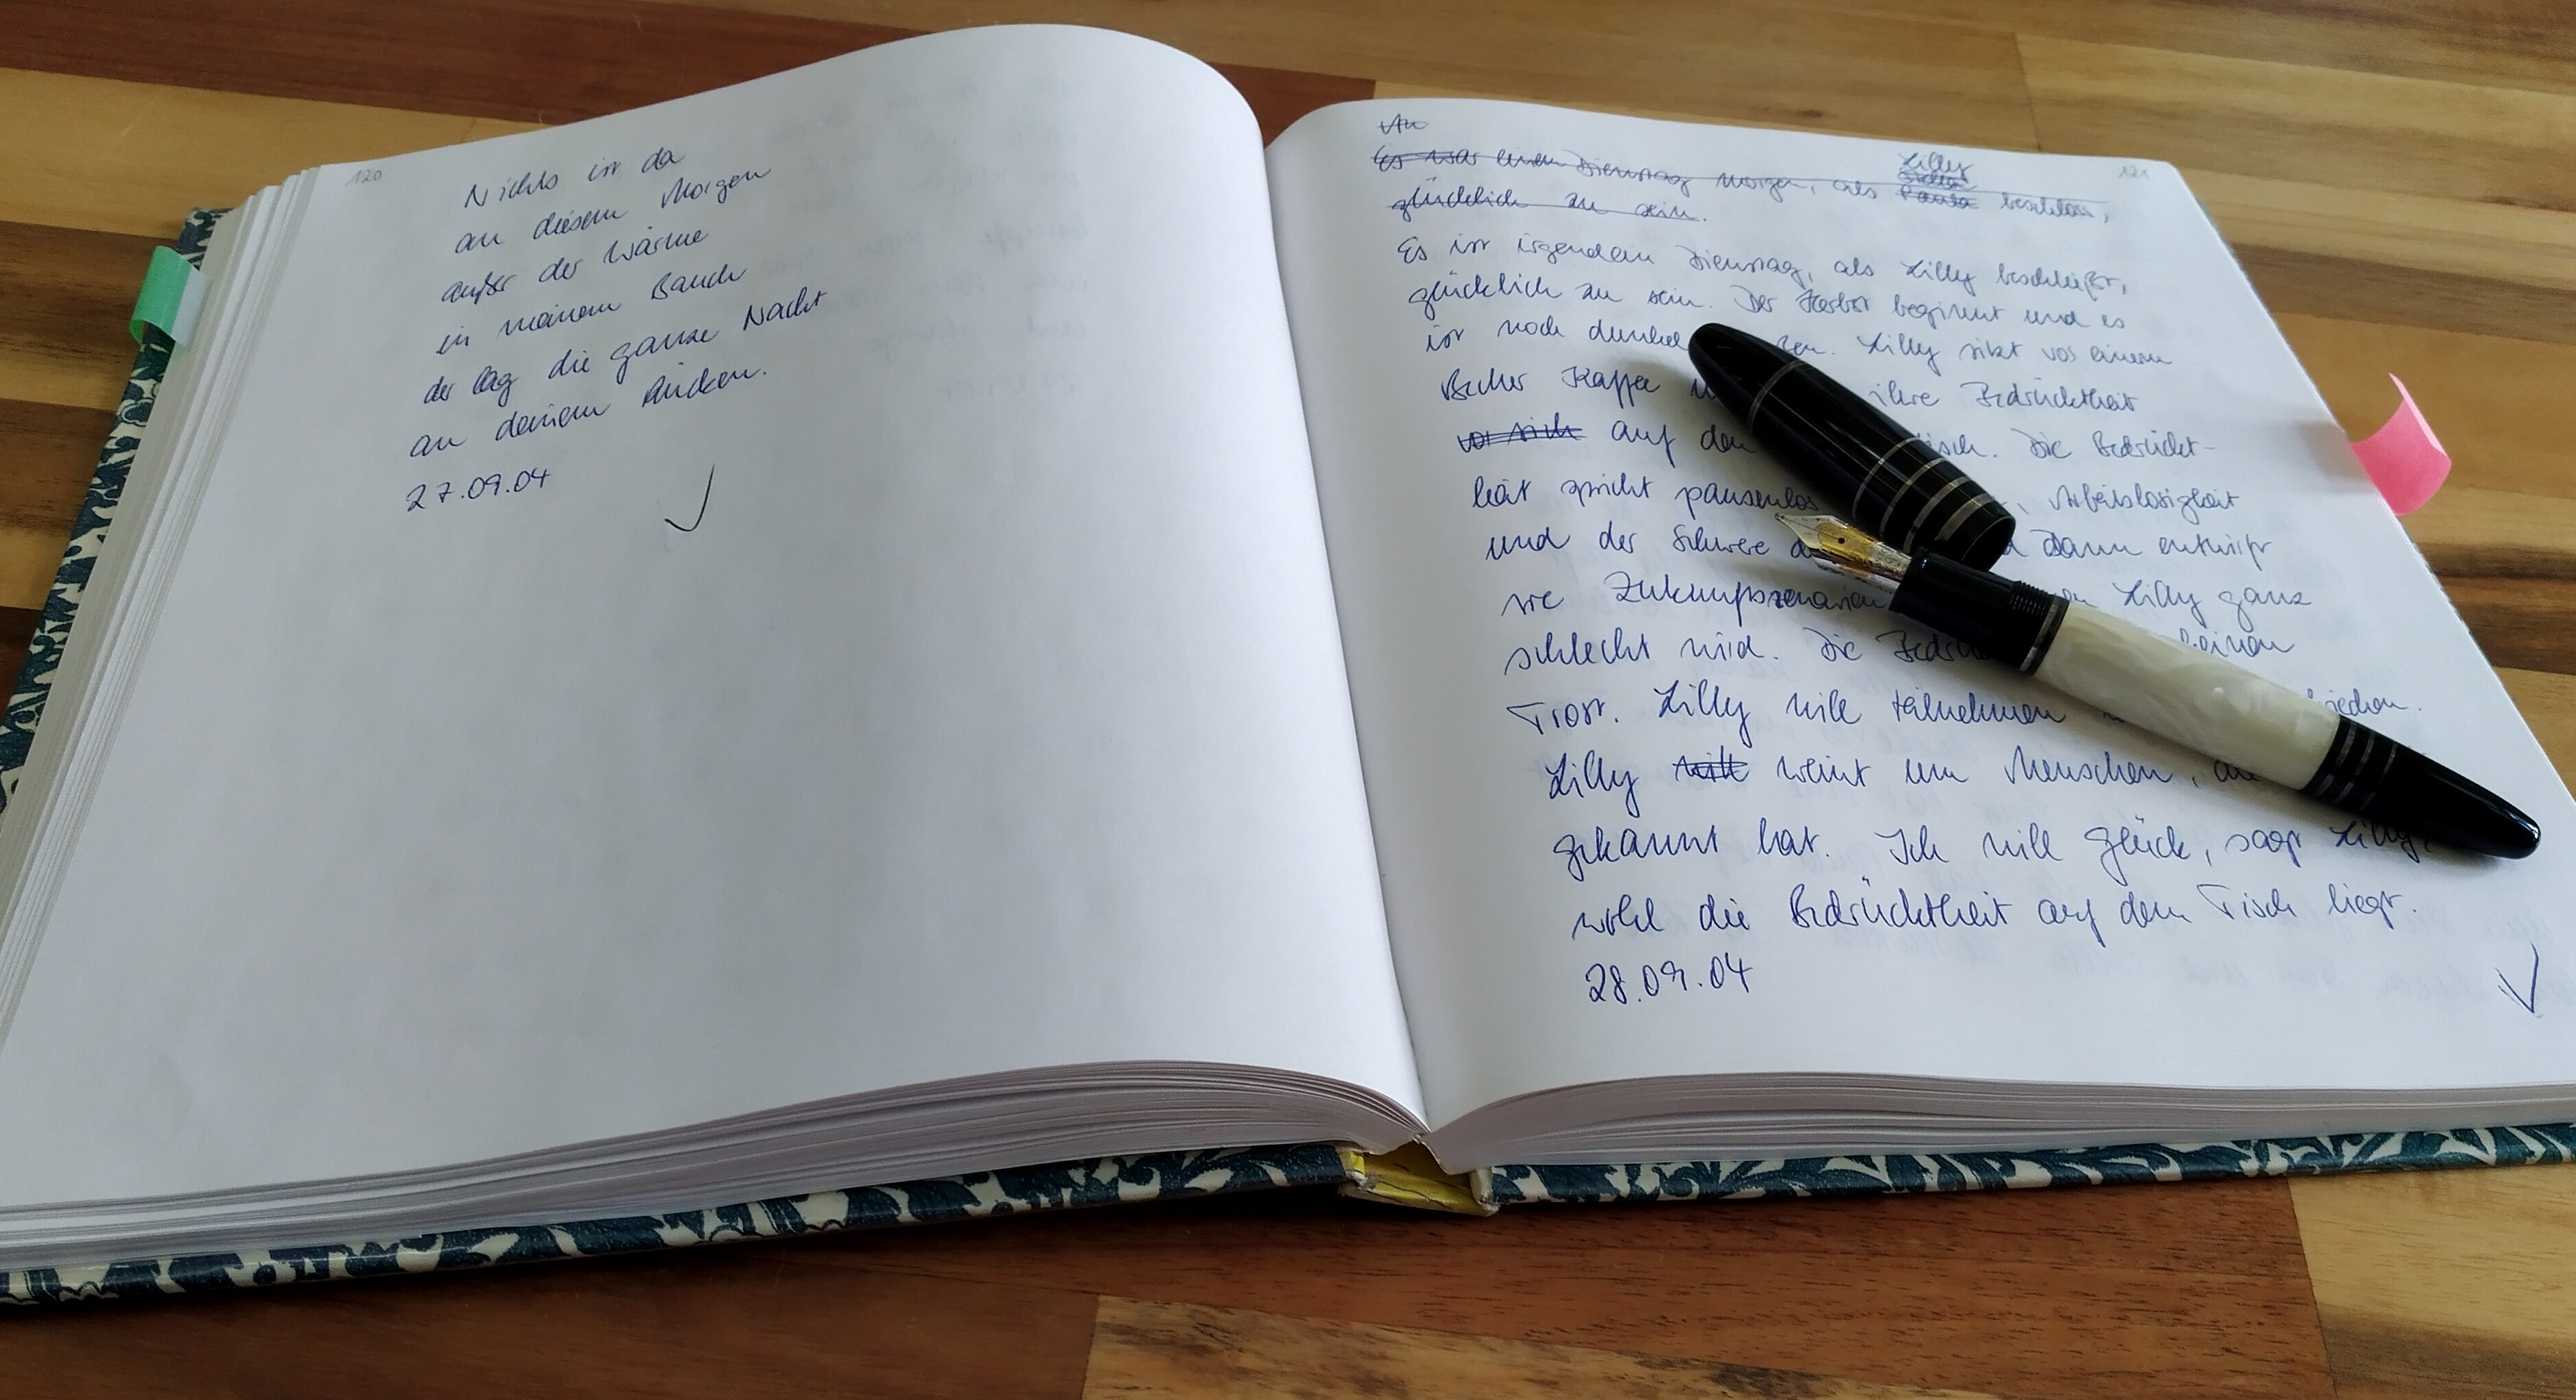 120
Nichts ist da
an diesem Morgen
außer der Wärme
in meinem Bauch
der lag die ganze Nacht
an deinem Rücken.
27.09.04
121
An
Es war einem Dienstag morgen, als Paula Lilly beschloss,
glücklich zu sein.
Es ist irgendein Dienstag, als Lilly beschließt,
glücklich zu sein. Der Herbst beginnt und es
ist noch dunkel Lilly sitzt vor einem
Becher Kaffee ihre Bedrücktheit
vor sich auf den Die Bedrückt-
heit spricht pausenlos , Arbeitslosigkeit
und der Schwere Dann entwirft
sie Zukunftsszenarien Lilly ganz
schlecht wird. Die keinen
Trost. Lilly will teilnehmen
Lilly will weint um Menschen,
gekannt hat. Ich will Glück, sagt Lilly,
wohl die Bedrücktheit auf dem Tisch liegt.
28.09.04